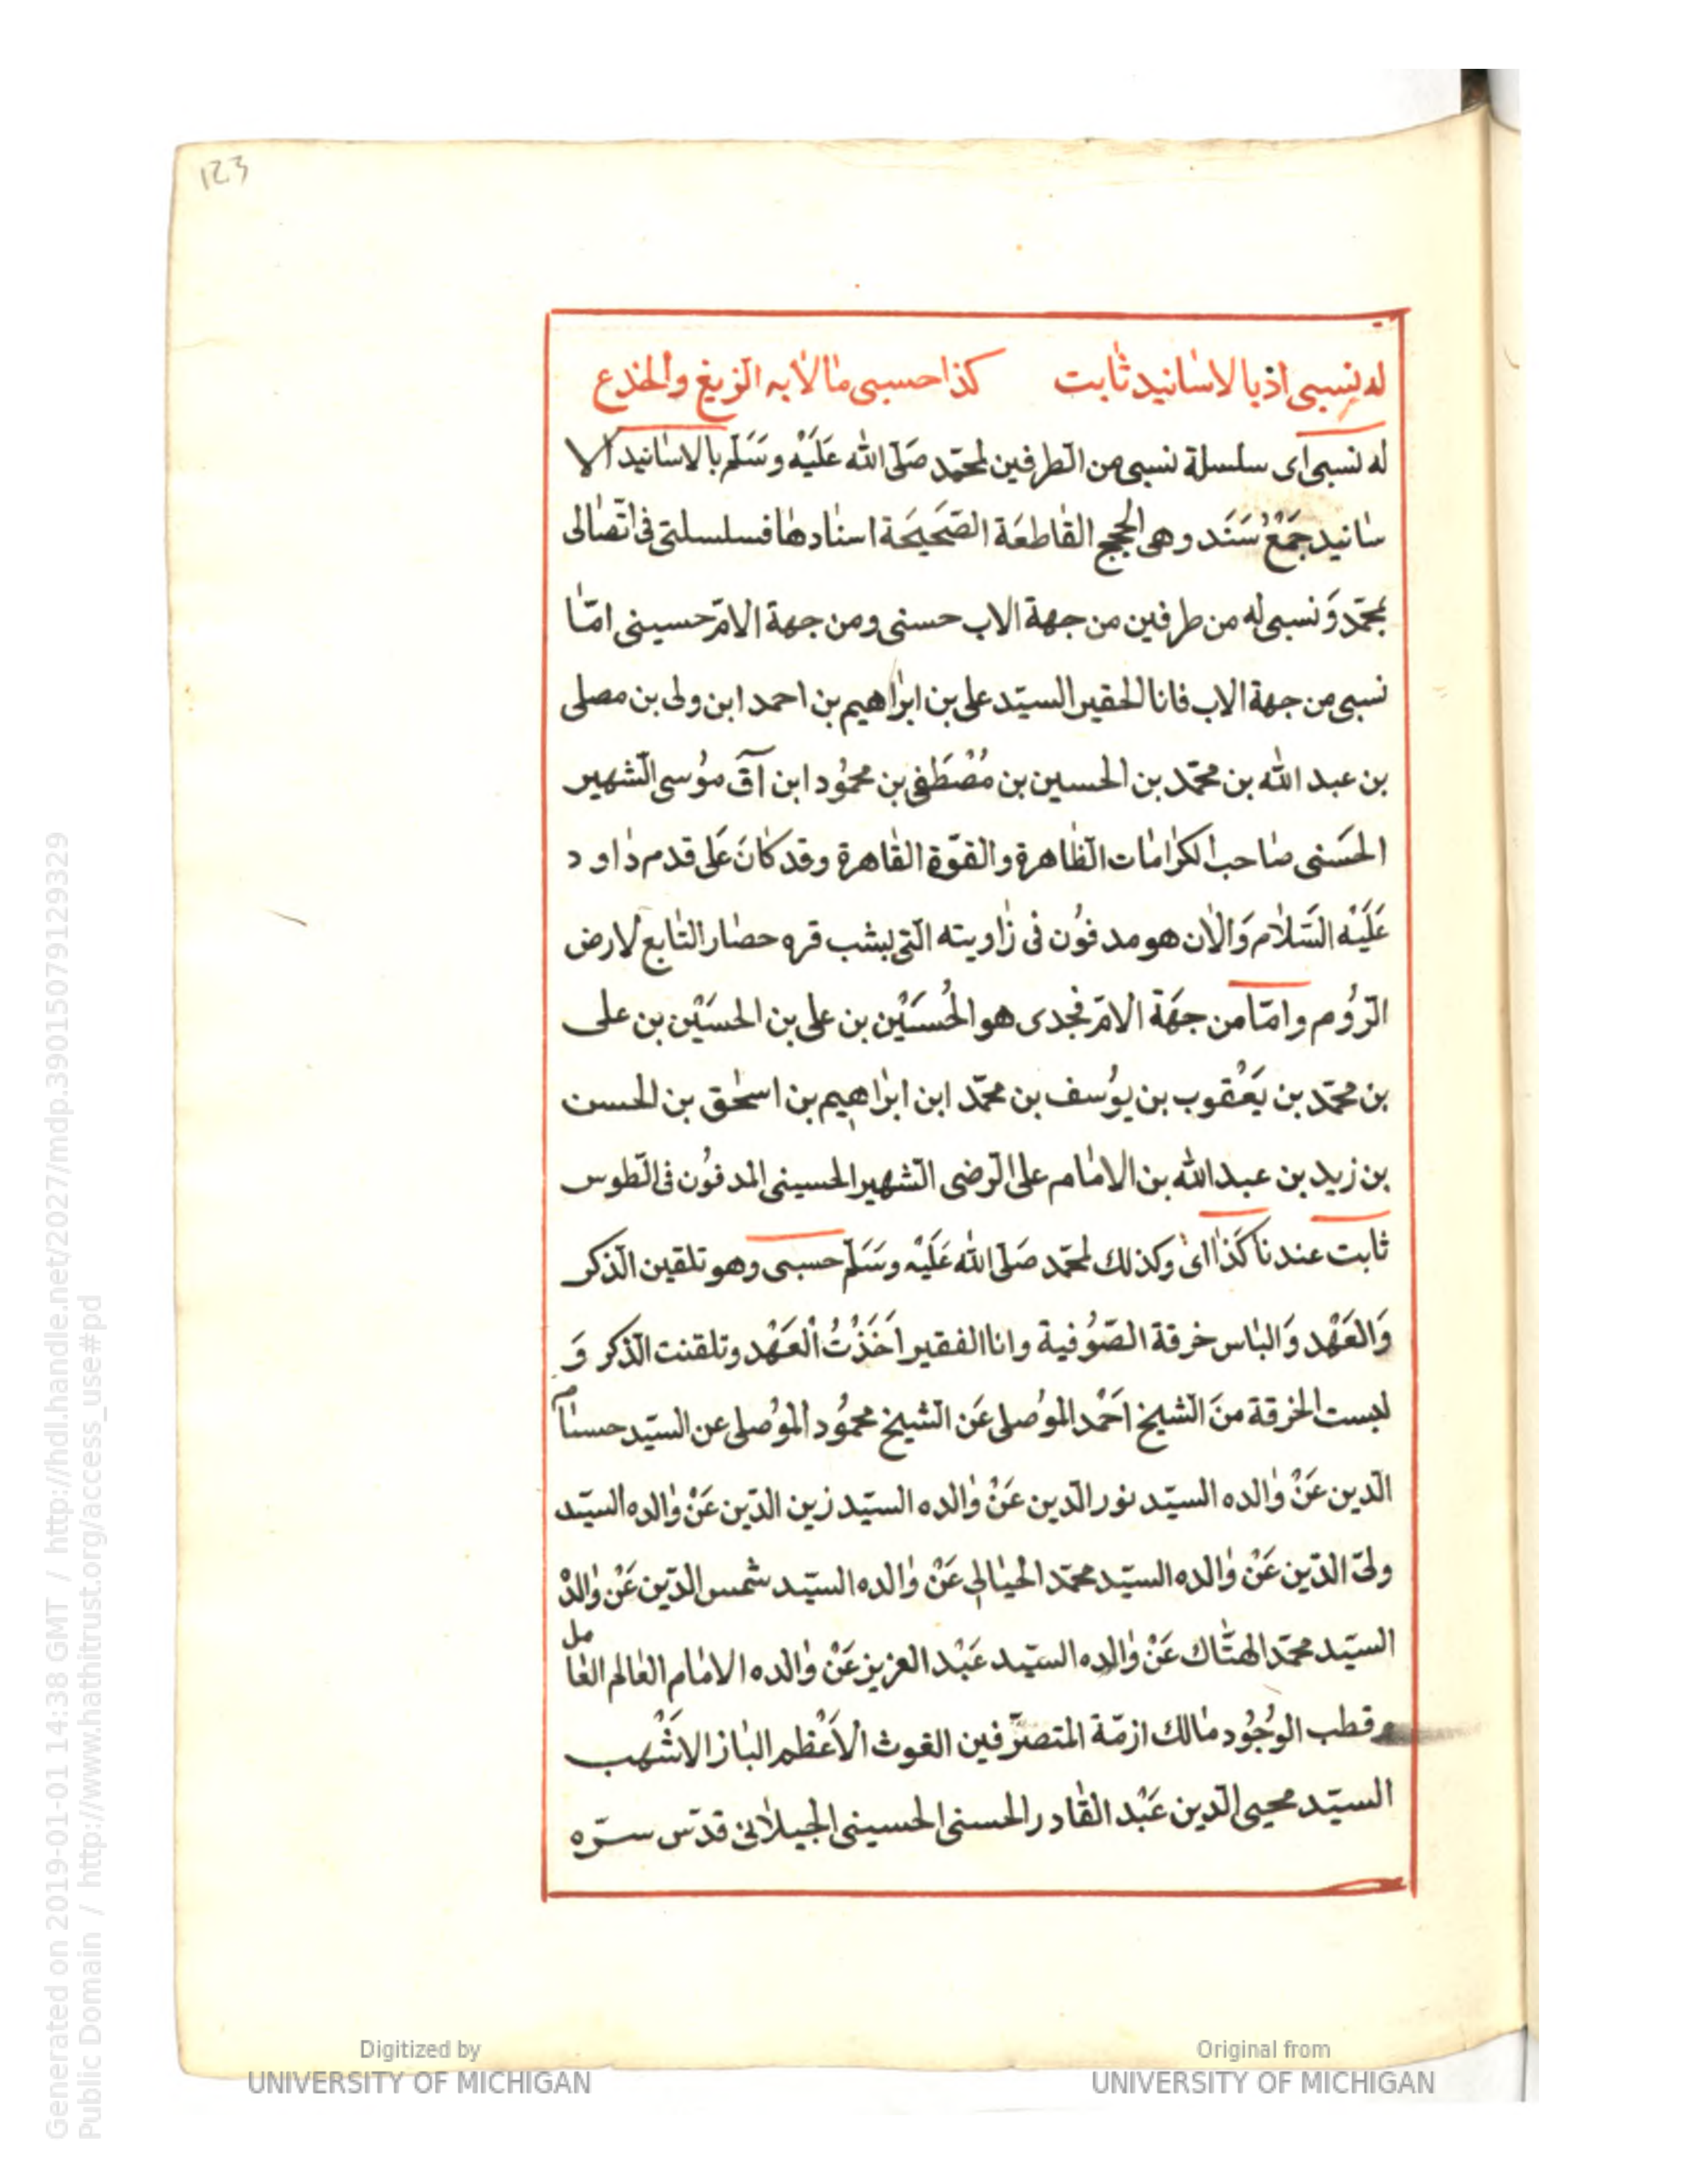 123
له نسبى اذ بالاسانيد ثابت كذا حسبى ما لا به الزيغ والخدع
له نسبى اى سلسلة نسبى من الطرفين لمحمّد صَلّى الله عَلَيْه وسَلّم بالاسانيد الا
سانيد جَمْعُ سَنَد وهى الحجج القاطعَة الصّحَيحَة اسنادها فسلسلتى فى اتّصالى
بمحمّد وَنسبى له من طرفين من جهة الاب حسنى ومن جهة الامّ حسينى امّا
نسبى من جهة الاب فانا الحقير السيّد على بن ابراهيم بن احمد ابن ولى بن مصلى
بن عبد الله بن محمّد بن الحسين بن مُصْطَفى بن محمُود ابن آق موُسى الشهير
الحسَنى صاحب الكرامات الظاهرة والقوّة القاهرة وقد كانَ عَلى قدم داود
عَلَيْه السَّلام وَالان هو مدفوُن فى زاويته التى بشب قره حصار التابع لارض
الرّوُم وامّا من جهَة الامّ فجدى هو الحُسَيْن بن على بن الحسَيْن بن على
بن محمّد بن يَعْقوب بن يوُسف بن محمّد ابن ابراهيم بن اسحٰق بن الحسن
بن زيد بن عبد الله بن الامام على الرّضى الشهير الحسينى المدفوُن فى الطوس
ثابت عندنا كَذا اى وكذلك لمحمّد صَلّى الله عَلَيْه وسَلّم حسبى وهو تلقين الذكر
وَالعَهْد وَالباس خرقة الصّوُفية وانا الفقير اخَذْتُ الْعَهْد وتلقنت الذكر وَ
لبست الخرقة منَ الشيخ احَمْد الموُصلى عَن الشيخ محموُد الموُصلى عن السيّد حسام
الدّين عَنْ والده السيّد نور الدّين عَنْ والده السيّد زين الدّين عَنْ والده السيّد
ولىّ الدّين عَنْ والده السيّد محمّد الحيالى عَنْ والده السيّد شمس الدّين عَنْ والدْ
السيّد محمّد الهتّاك عَنْ والده السيّد عَبْد العزيز عَنْ والده الامام العالم العامل
وقطب الوُجوُد مالك ازمّة المتصرّفين الغوث الاَعْظم الباز الاشْهب
السيّد محيى الدّين عَبْد القادر الحسنى الحسينى الجيلانى قدّس سرّه
Digitized by
UNIVERSITY OF MICHIGAN
Original from
UNIVERSITY OF MICHIGAN
Generated on 2019-01-01 14:38 GMT / http://hdl.handle.net/2027/mdp.39015079129329
Public Domain / http://www.hathitrust.org/access_use#pd